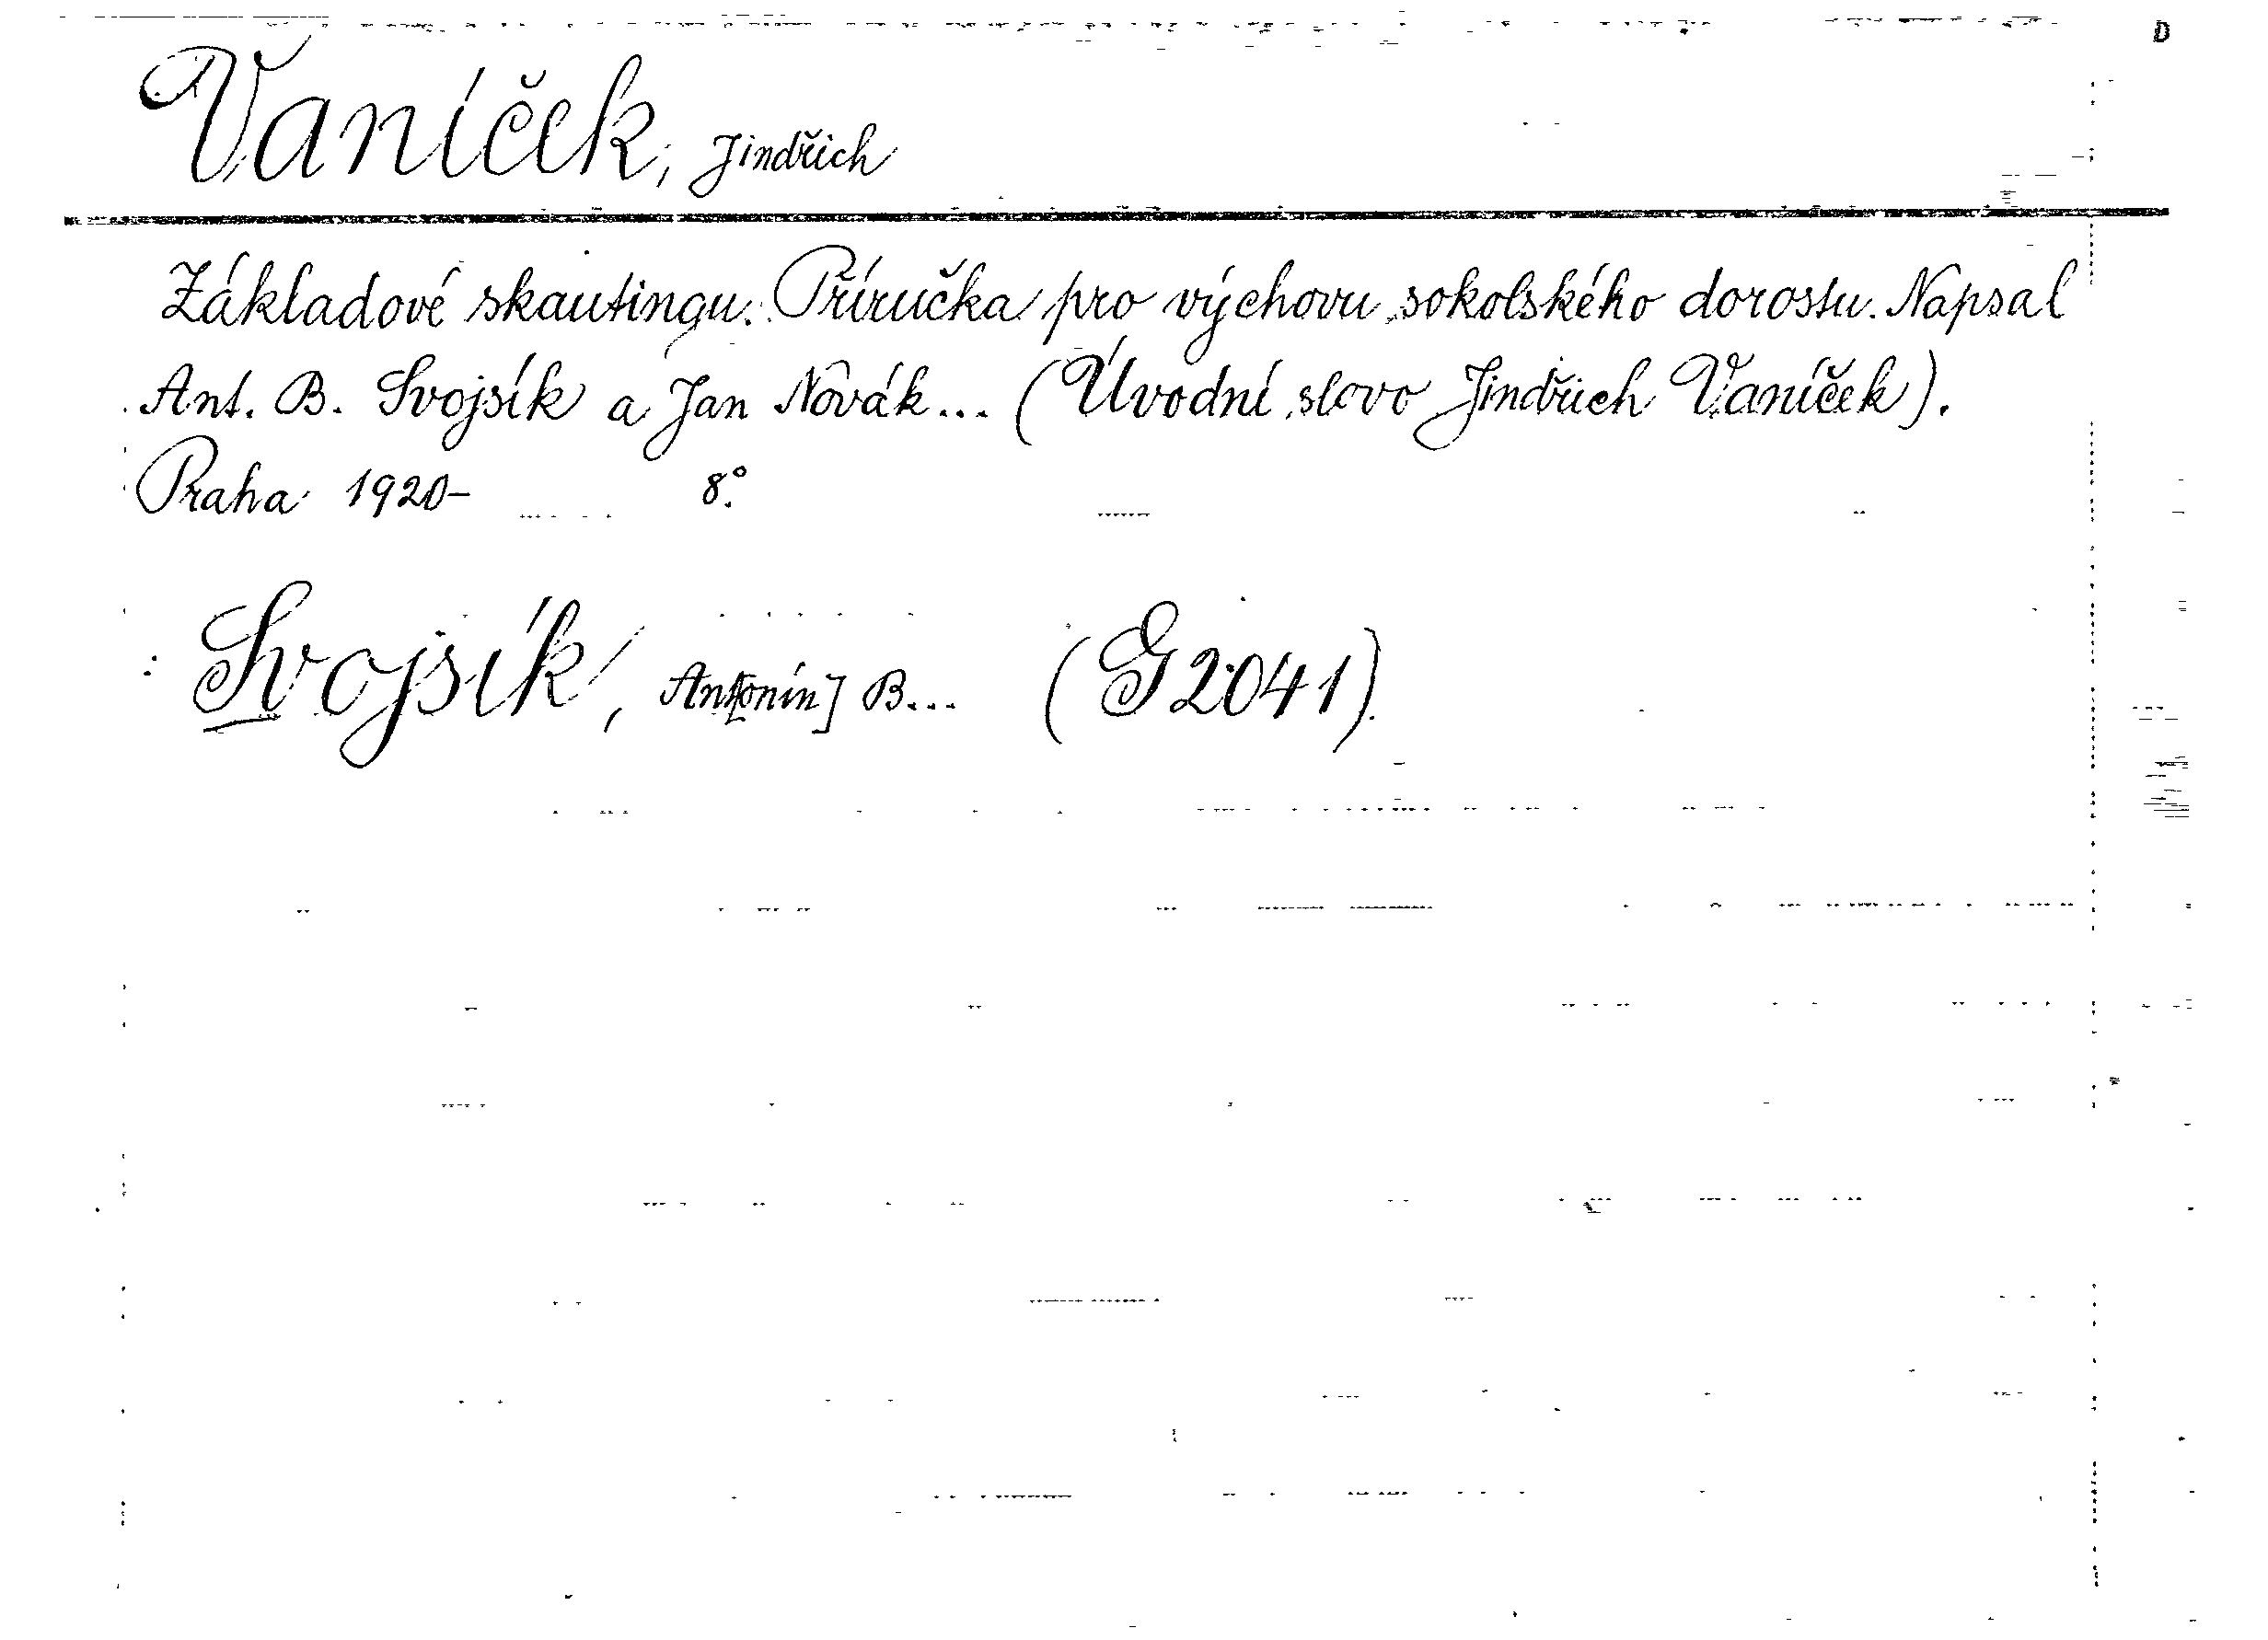 D
Vaníček, Jindřich
Základové skautingu. Příručka pro výchovu sokolského dorostu. Napsal
Ant. B. Svojsík a Jan Novák... (Úvodní slovo Jindřich Vaníček).
Praha 1920- 8°.
: Svojsík, Ant[onín] B... (G 2041).